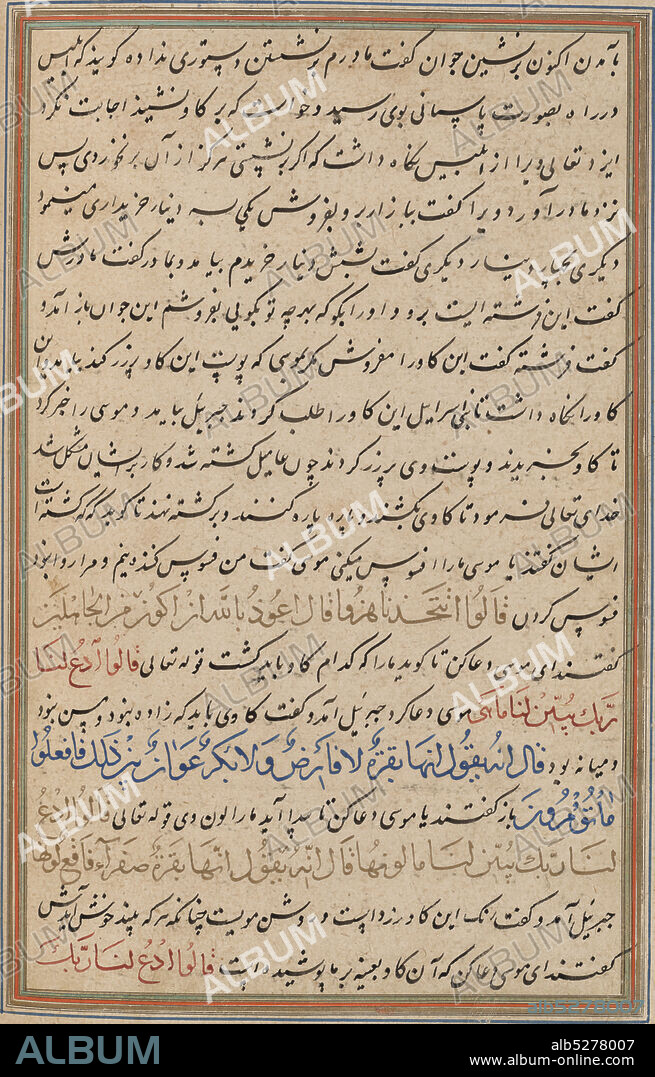 با آمدن اکنون برنشین جوان گفت مادرم برنشستن دستوری نداده گویند که ابلیس
در راه بصورت پاسبانی بوی رسید و خواست که بر گاو نشیند اجابت نکرد
ایزد تعالی ویرا از ابلیس نگاه داشت که اگر برنشستی هرگز از آن برنخوردی پس
نزد مادر آورد ویرا گفت ببازار برو بفروش یکی بسه دینار خریداری مینمود
دیگری پنج دینار دیگری گفت بشش دینار خریدم بیامد و بمادر گفت مادرش
گفت این فرشته است برو و او را بگو که بهرچه تو بگویی بفروشم این جوان باز آمد و
گفت فرشته گفت این گاو را مفروش مگر بموسی که پوست این گاو پر زر کند بیامد و این
گاو را نگاه داشت تا بنی اسرایل این گاو را طلب کردند جبرئیل بیامد و موسی را خبر کرد
تا گاو بخریدند و پوست وی پر زر کردند چون عامیل کشته شد و کار بر ایشان مشکل شد
خدای تعالی فرمود تا گاوی بکشند و پاره کنند و بر کشته نهند تا گوید که که کشته است
ایشان گفتند یا موسی ما را افسوس میکنی موسی گفت من فسوس کننده نیم و مرا روا نبود
فسوس کردن قَالُوا أَتَتَّخِذُنَا هُزُوًا قَالَ أَعُوذُ بِاللَّهِ أَنْ أَكُونَ مِنَ الْجَاهِلِينَ
گفتند ای موسی دعا کن تا گوید ما را که کدام گاو باید کشت قوله تعالی قَالُوا ادْعُ لَنَا
رَبَّكَ يُبَيِّنْ لَنَا مَا هِيَ موسی دعا کرد جبرئیل آمد و گفت گاوی باید که زاده نبود و مسن نبود
و میانه بود قَالَ إِنَّهُ يَقُولُ إِنَّهَا بَقَرَةٌ لَا فَارِضٌ وَلَا بِكْرٌ عَوَانٌ بَيْنَ ذَلِكَ فَافْعَلُوا
مَا تُؤْمَرُونَ باز گفتند یا موسی دعا کن تا پیدا آید ما را لون وی قوله تعالی قَالُوا ادْعُ
لَنَا رَبَّكَ يُبَيِّنْ لَنَا مَا لَوْنُهَا قَالَ إِنَّهُ يَقُولُ إِنَّهَا بَقَرَةٌ صَفْرَاءُ فَاقِعٌ لَوْنُهَا
جبرئیل آمد و گفت رنگ این گاو زرد است و روشن مویست چنانکه هر که بیند خوش آیدش
گفتند ای موسی دعا کن که آن گاو بعینه بر ما پوشیده است قَالُوا ادْعُ لَنَا رَبَّكَ
ALBUM
alb5278007
www.album-online.com